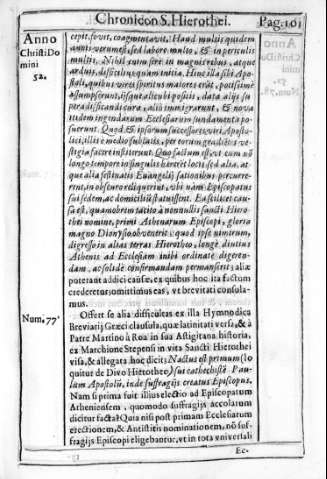 Chronicon S. Hierothei. Pag. 101
Anno
Christi Do
mini
52.
cepit. fovet, coagmentavit. Haud multis quidem
annis verum est, sed labore multo, & in periculis
multis. Nihil enim fere in magnis rebus, atque
arduis, difficilius quam initia. Hinc illa sibi Apo-
stoli, quibus vires spiritus maiores erant, potissimè
assumpserunt, iisque alienbi positis, data alijs su
peraedificandi cura, aliò immigrarunt, & nova
itidem ingentarum Ecclesiarum fundamenta po
suerunt. Quod & ipsorum successores viri, Aposto-
lici, illis è medio sublatis, per eorum gradientes ve-
stigia facere institerunt.
longo tempore in singulis hererēt locis sed alia, at-
que alia festinatis Euangelij sationibus percurre-
rent, in obscuro est quibus, ubi nam Episcopatus
sui sedem, ac domicilium statuissent. Ea scilicet cau-
sa est, quamobrem tacito à nonnullis sancti Hiero-
thei nomine, primi Athenarum Episcopi, gloria
magno Dionysio obvenerit: quod ipse nimirum,
digresso in alias terras Hierotheo, longè diutius
Athenis ad Ecclesiam inibi ordinatè digeren-
dam, ac solidè confirmandam permanserit; aliæ
poterant addici causæ, ex quibus hoc ita factum
crederetur; omittimus eas, vt brevitati consula-
mus.
Num. 77.
Offert se alia difficultas ex illa Hymnodica
Breviarij Græci clausula, quæ latinitati versa, & à
Patre Martino à Roa in sua Astigitana historia,
ex Marchione Stepensi in vita Sancti Hierothei
visa, & allegata hoc dicit: Nactus est primum (lo
quitur de Divo Hierotheo) sui cathechistē Pau-
lum Apostolū, inde suffragijs creatus Episcopus.
Nam si prima fuit illius electio ad Episcopatum
Atheniensem, quomodo suffragijs accolarum
dicitur facta? Quia nisi post primam Ecclesiarum
erectionem, & Antistitis nominationem, nō suf-
fragijs Episcopi eligebantur, vt in tota vniversali
Ec-